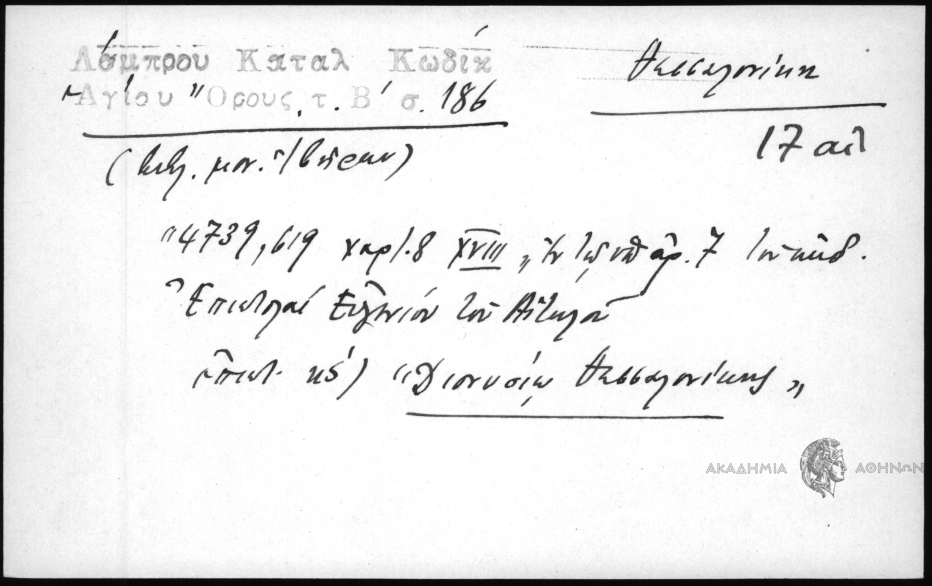 Λάμπρου Καταλ Κωδίκ
Ἁγίου Ὄρους τ. Β΄ σ. 186
Θεσσαλονίκη
17 αἰ
(βιβλ. μον. Ἰβήρων)
"4739, 619 χαρτ. 8 XVIII, ἐν τῷ ὑπ' ἀρ. 7 τοῦ κώδ.
Ἐπιστολαί Εὐγενίου τοῦ Αἰτωλοῦ
ἐπιστ. κδ΄) "Διονυσίῳ Θεσσαλονίκης"
ΑΚΑΔΗΜΙΑ ΑΘΗΝΩΝ